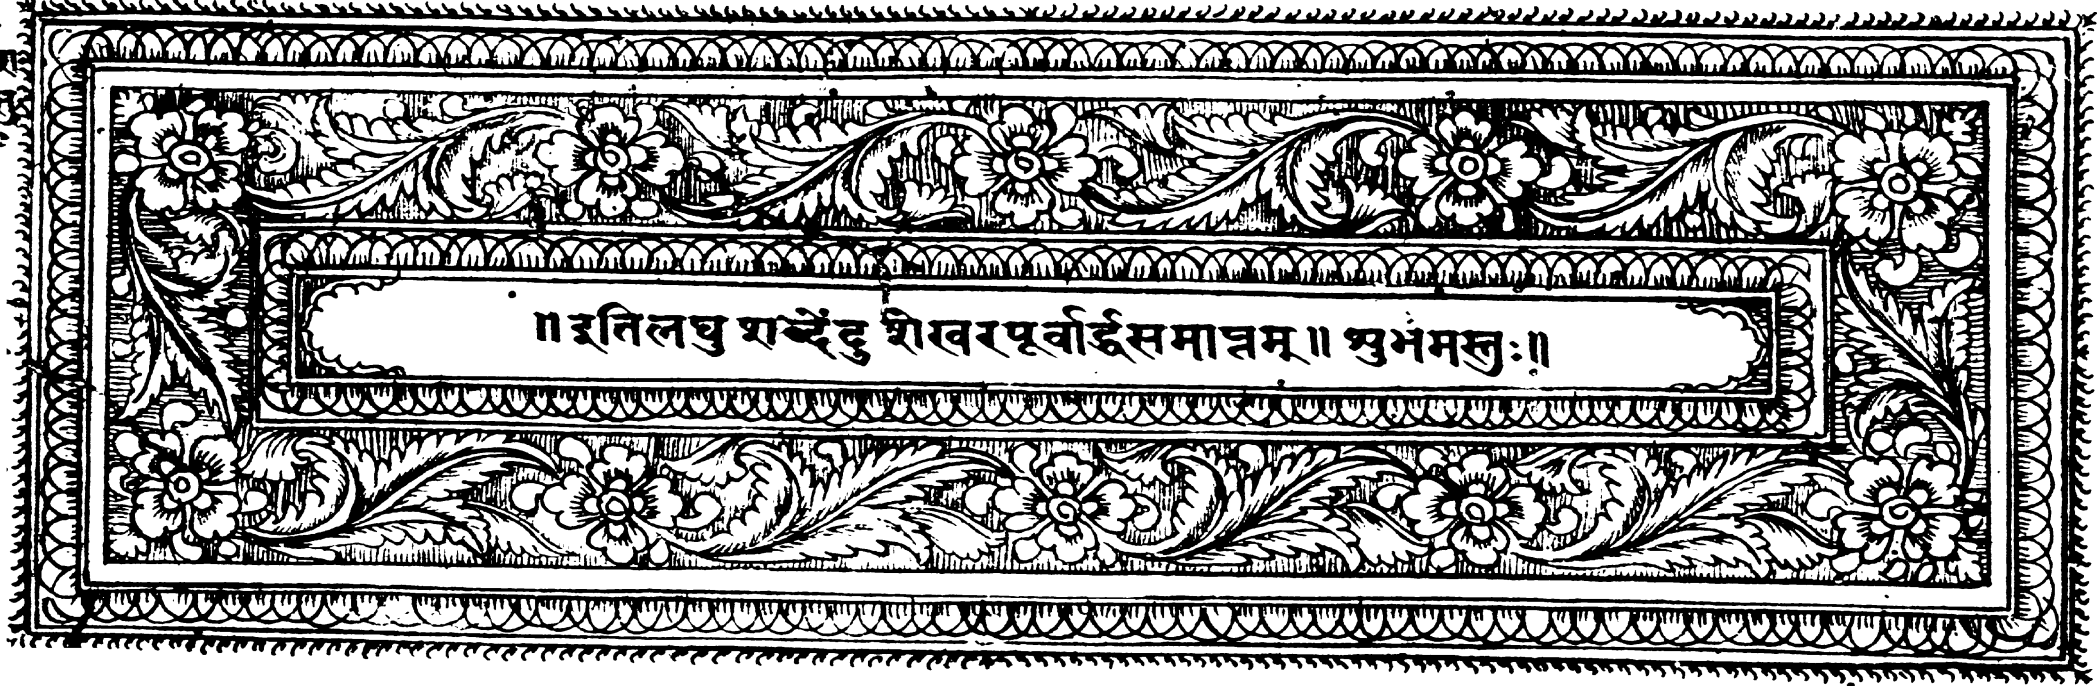 ॥ इति लघु शब्देंदु शेखरपूर्वार्द्धसमाप्तम् ॥ शुभंमस्तुः ॥